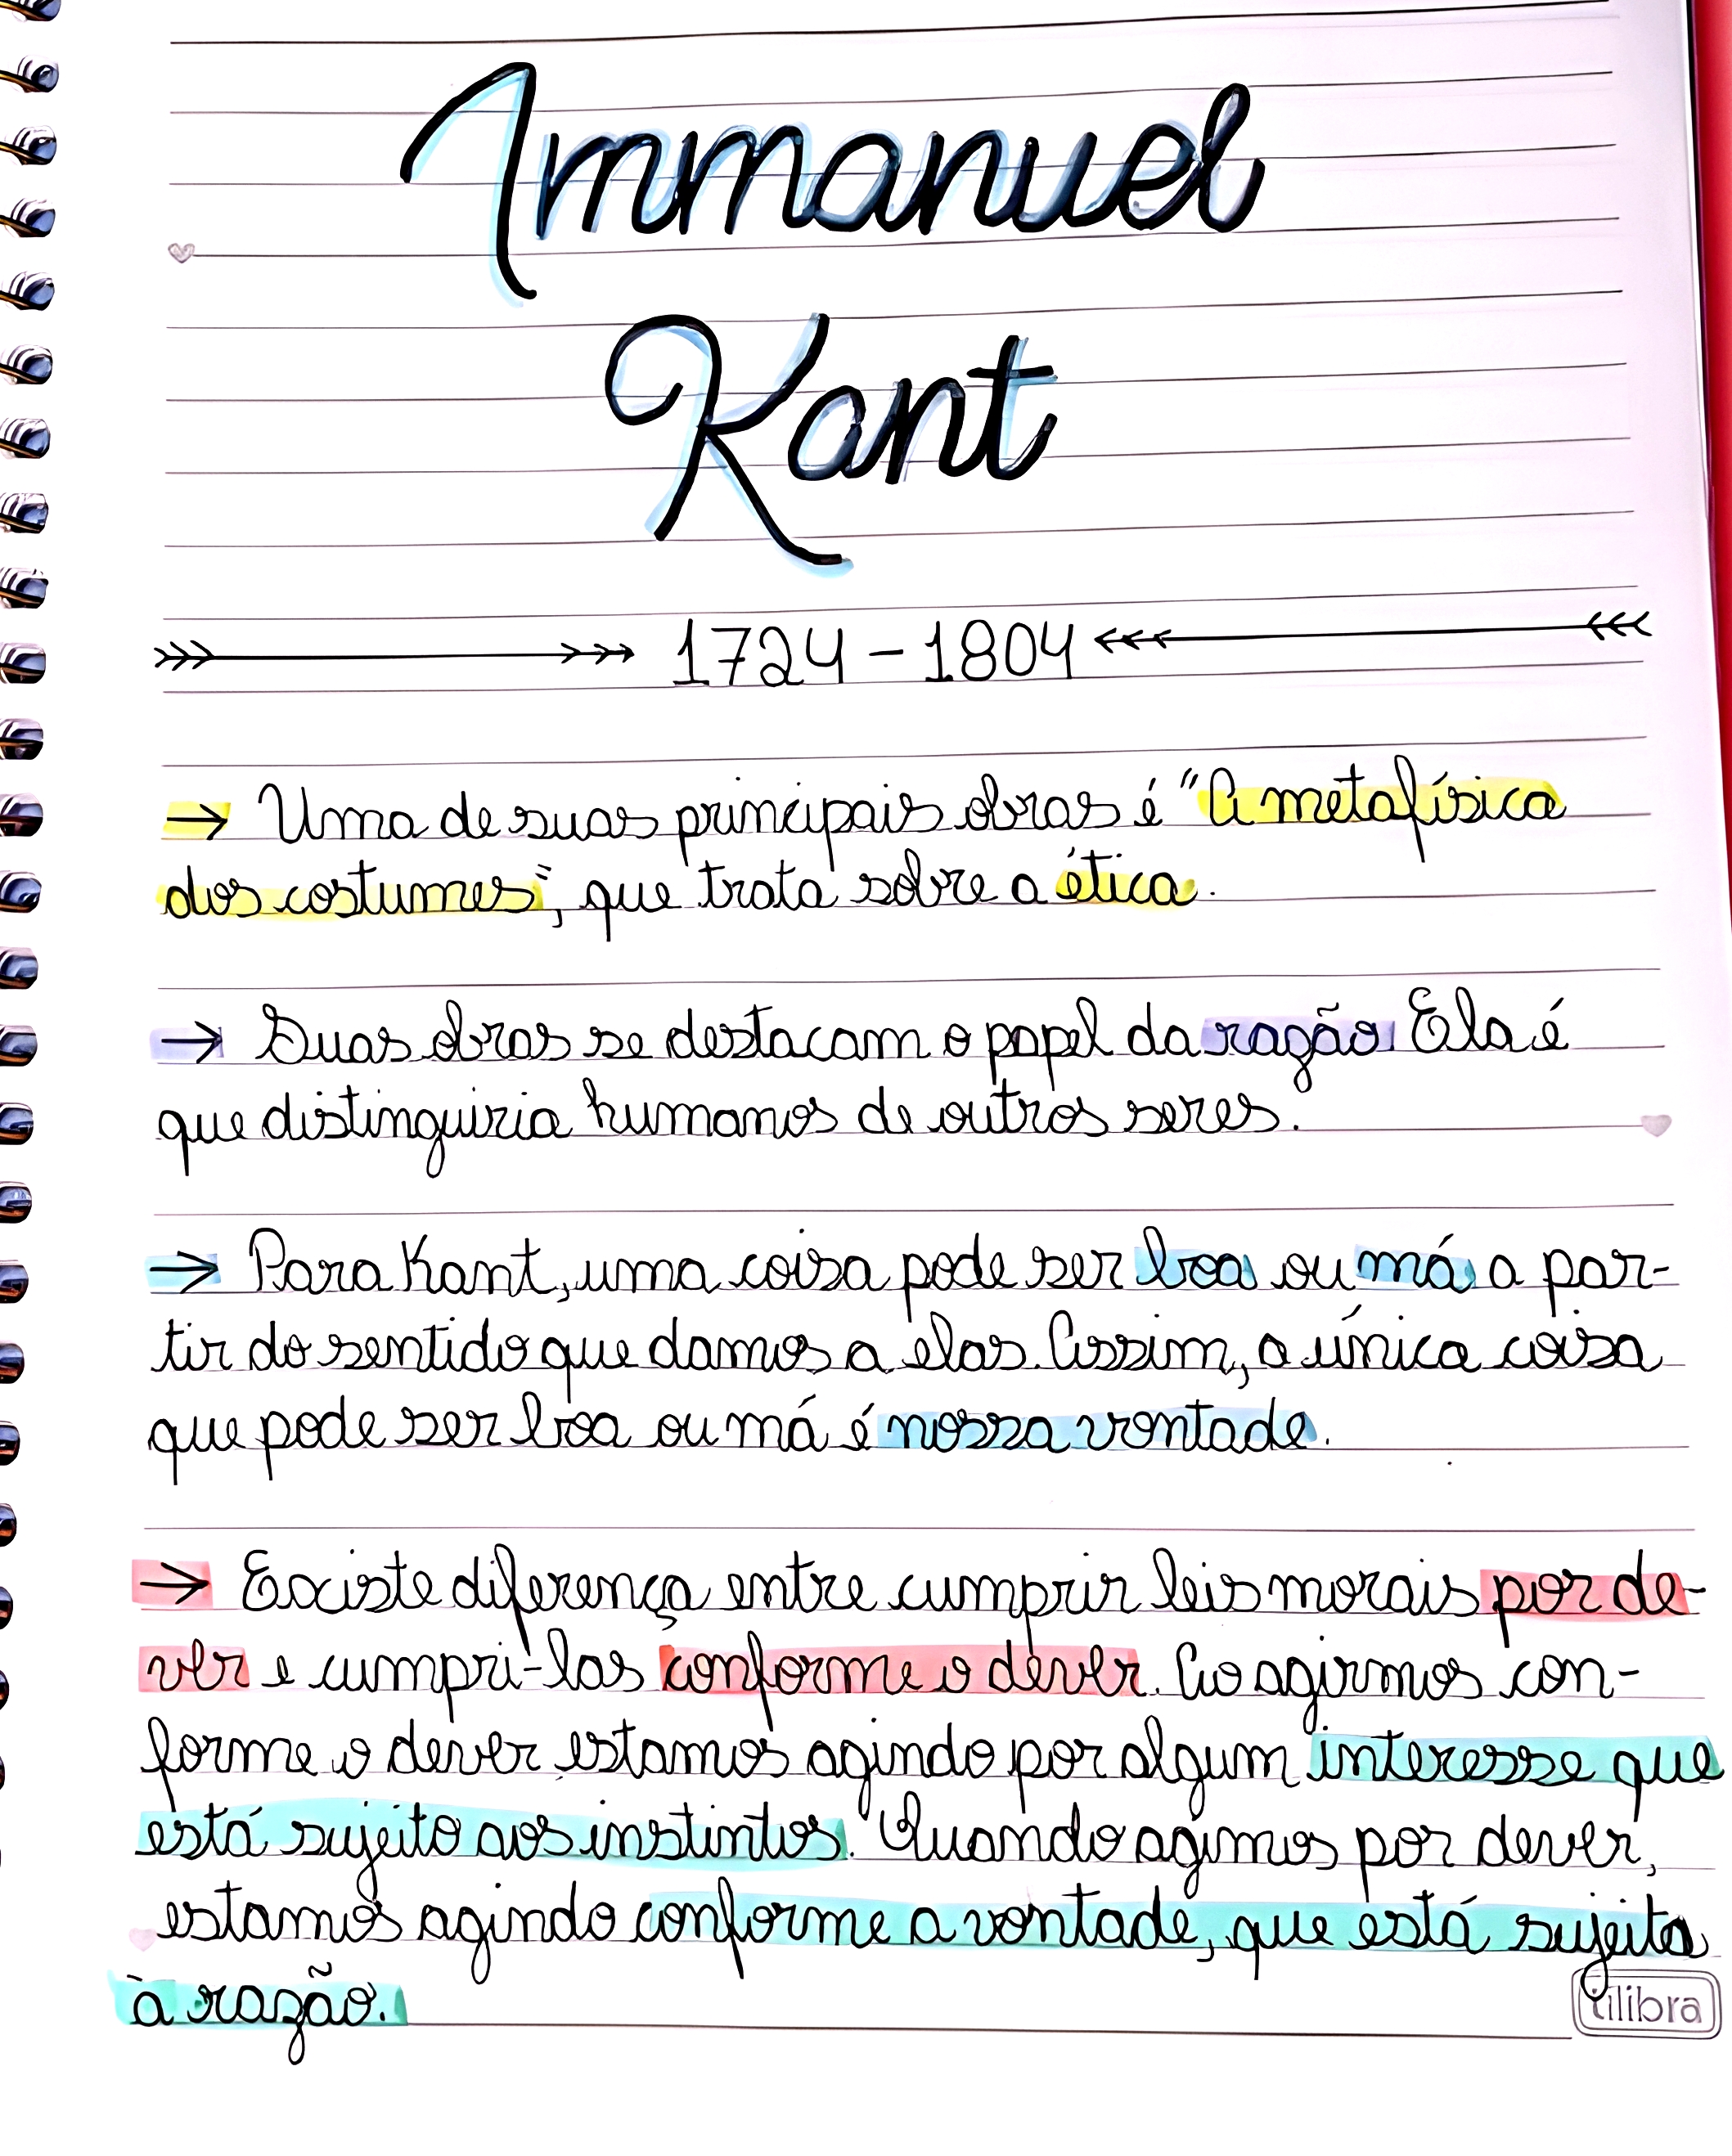 Immanuel
Kant
1724 - 1804
→ Uma de suas principais obras é "A metafísica
dos costumes", que trata sobre a ética.
→ Suas obras se destacam o papel da razão. Ela é
que distinguiria humanos de outros seres.
→ Para Kant, uma coisa pode ser boa ou má a par-
tir do sentido que damos a elas. Assim, a única coisa
que pode ser boa ou má é nossa vontade.
→ Existe diferença entre cumprir leis morais por de-
ver e cumpri-las conforme o dever. Ao agirmos con-
forme o dever estamos agindo por algum interesse que
está sujeito aos instintos. Quando agimos por dever,
estamos agindo conforme a vontade, que está sujeita
à razão.
tilibra